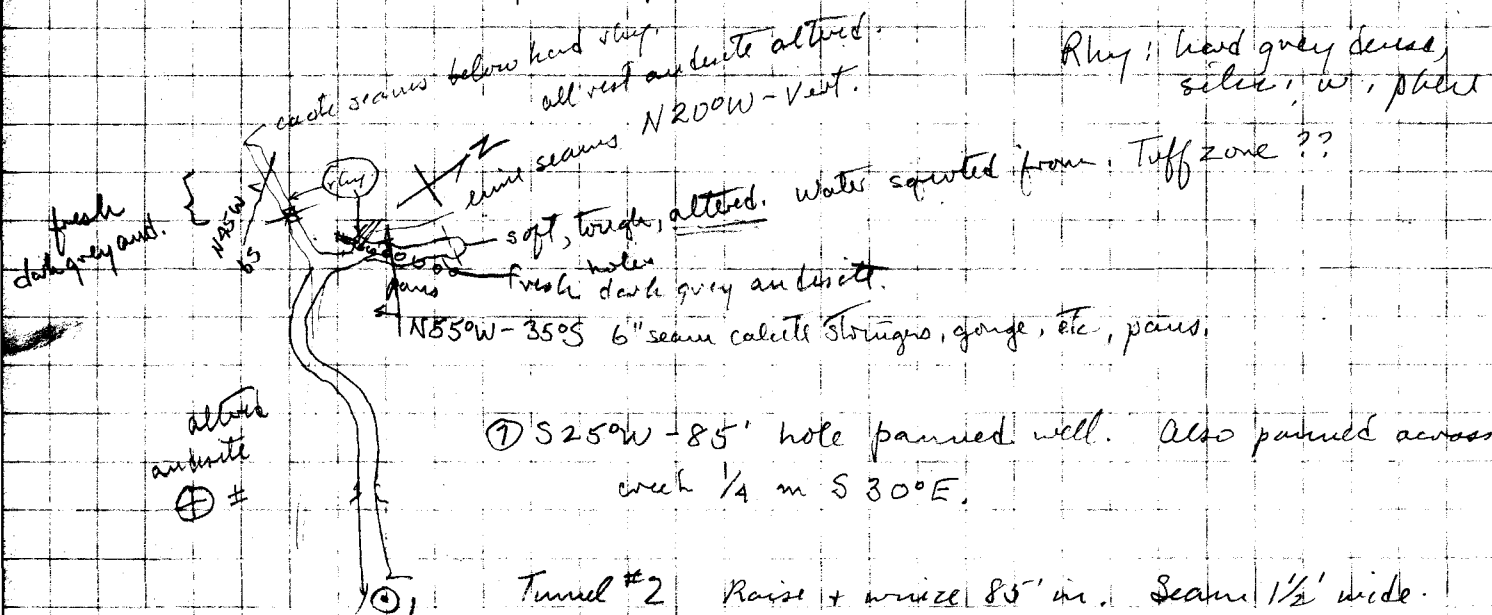 seams below hard rhy.
all rest andesite altered.
seams N20°W - Vert.
Rhy: hard grey dense,
silic. w.
N
rhy
fresh
dark grey and.
N45W
65
soft, tough, altered. Water squirted from. Tuff zone ??
holes
pans
fresh dark grey andesite.
N55°W - 35°S 6" seam calcite stringers, gouge, etc, pans.
altered
andesite
#
S25°W - 85' hole panned well. Also panned across
creek 1/4 m S 30°E.
1
Tunnel #2 Raise + winze 85' in. Seam 1½' wide.